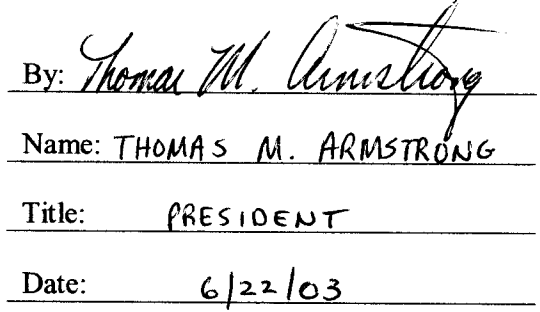 By: Thomas M. Armstrong
Name: THOMAS M. ARMSTRONG
Title: PRESIDENT
Date: 6/22/03